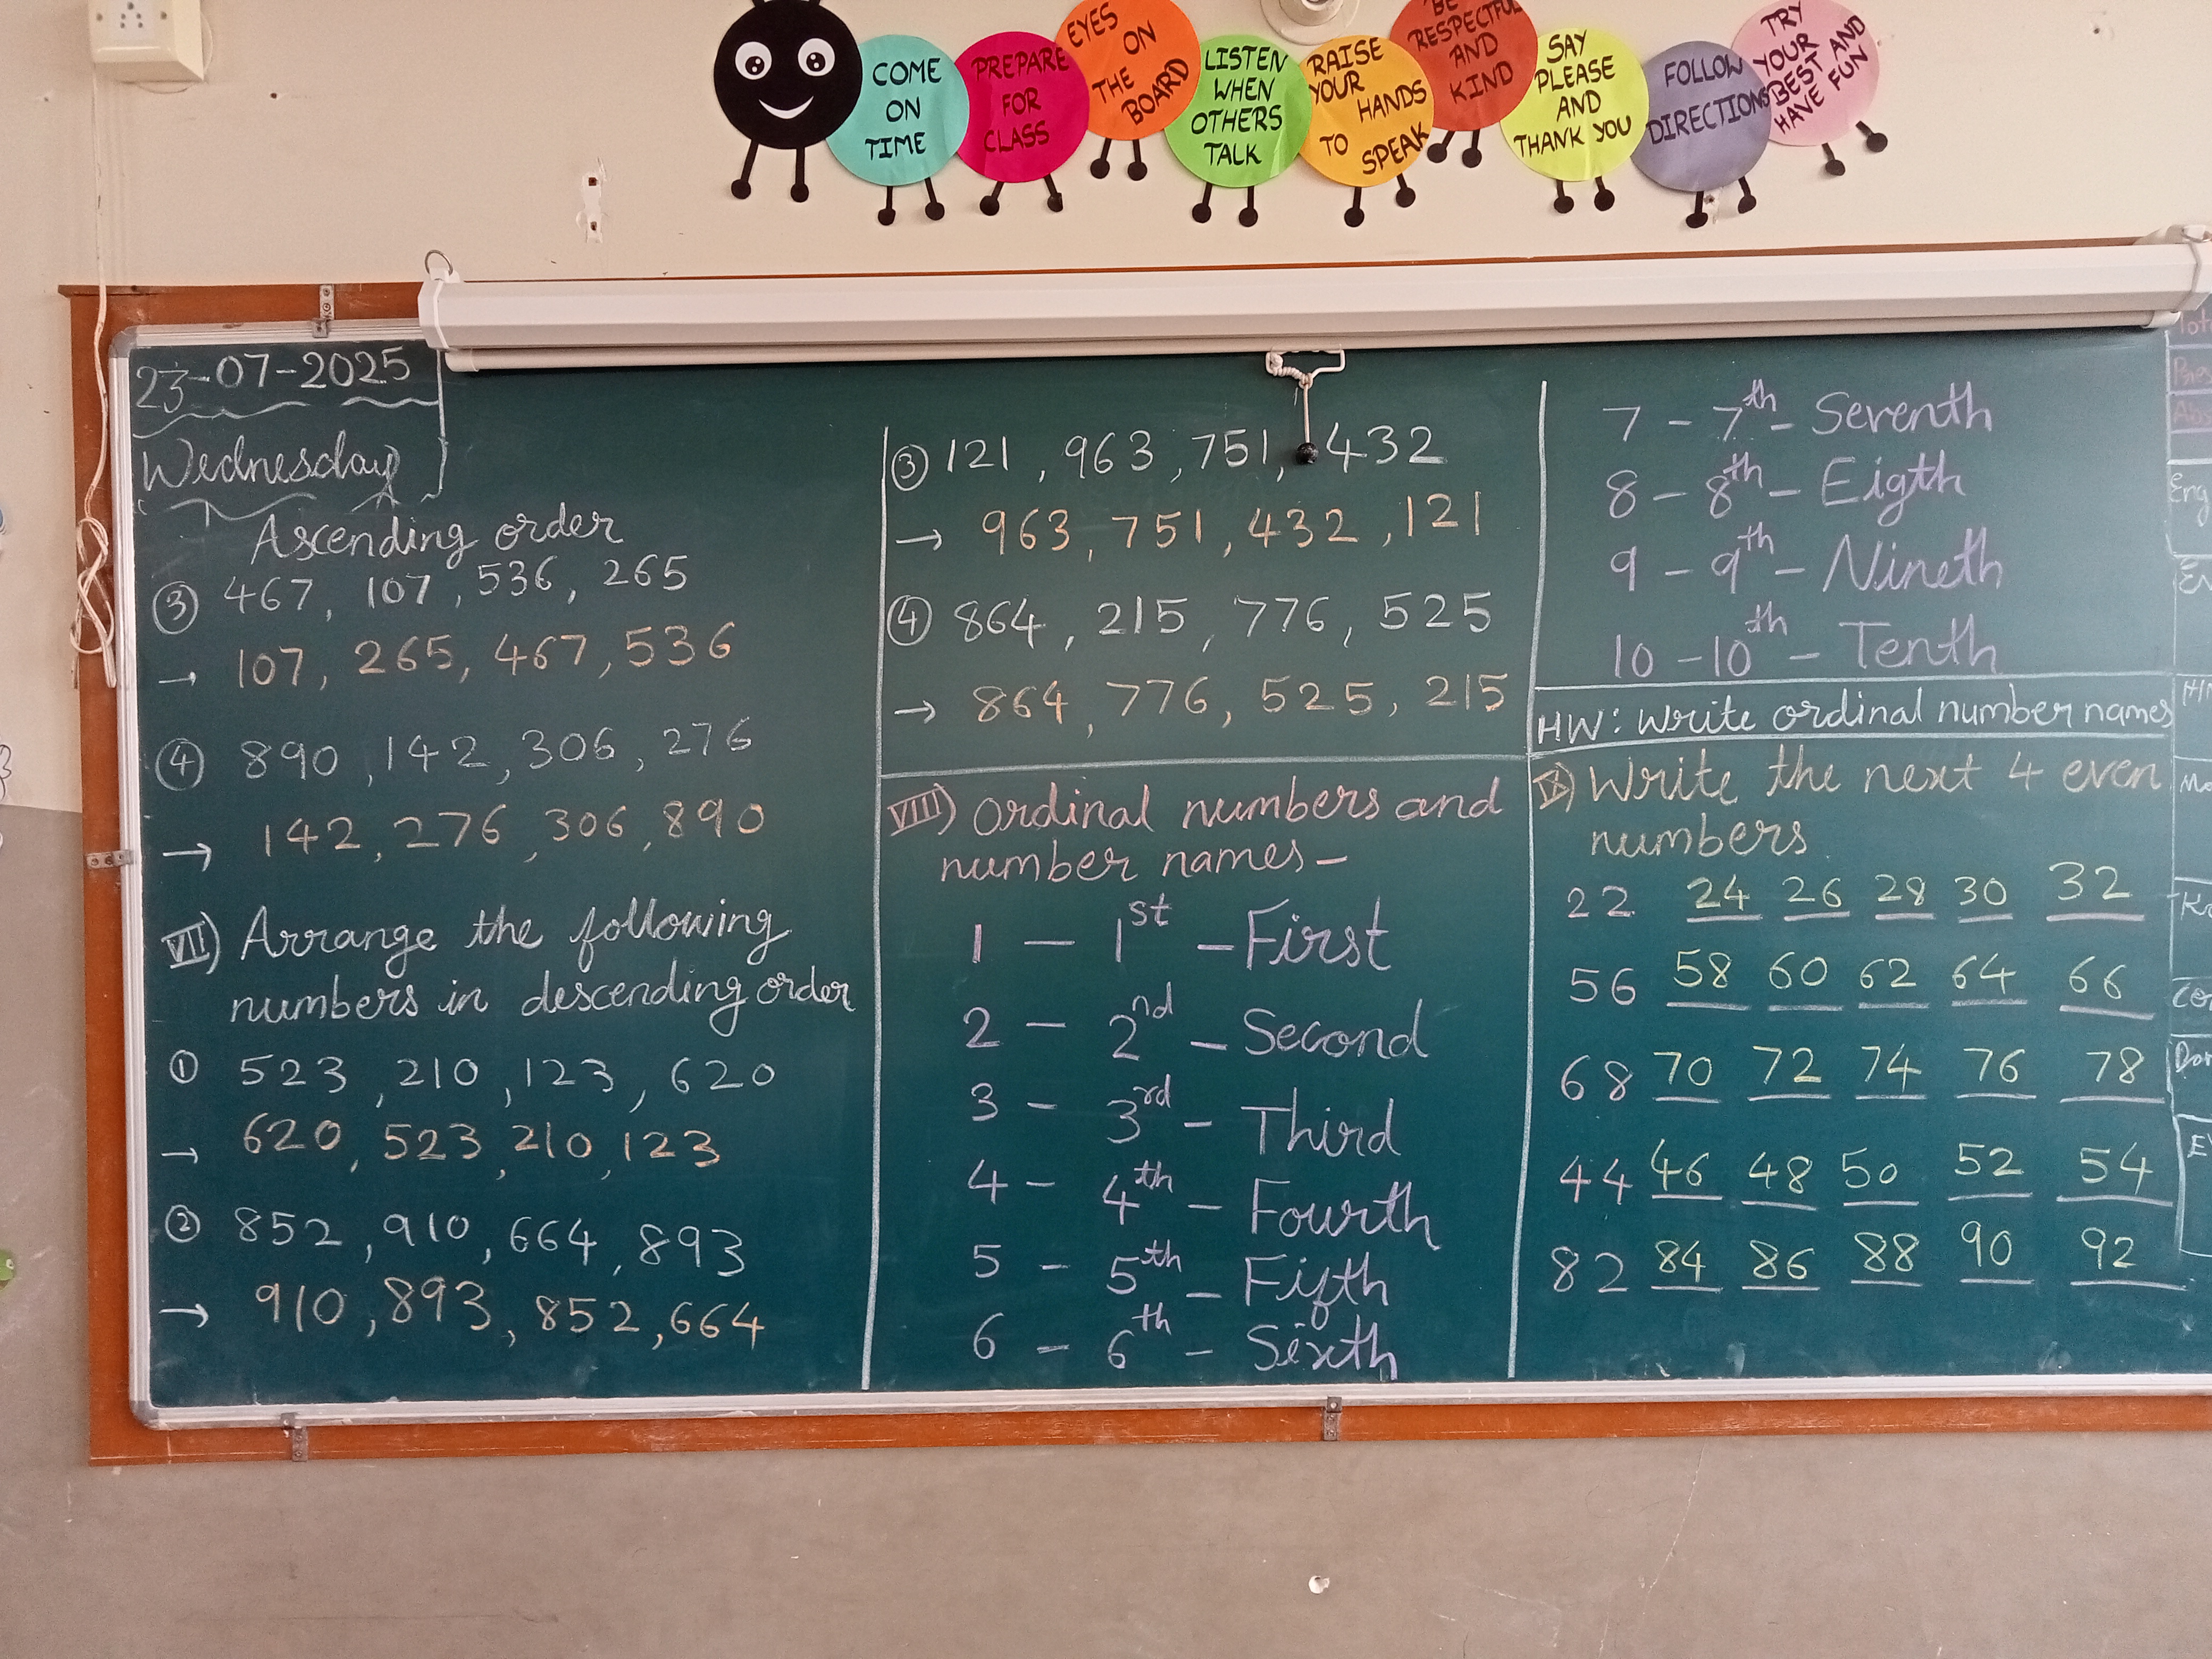 COME
ON
TIME
PREPARE
FOR
CLASS
EYES
ON
THE
BOARD
LISTEN
WHEN
OTHERS
TALK
RAISE
YOUR
HANDS
TO
SPEAK
BE
RESPECTFUL
AND
KIND
SAY
PLEASE
AND
THANK YOU
FOLLOW
DIRECTIONS
TRY
YOUR
BEST AND
HAVE FUN
23-07-2025
Wednesday
Ascending order
③ 467, 107, 536, 265
→ 107, 265, 467, 536
④ 890, 142, 306, 276
→ 142, 276, 306, 890
VII) Arrange the following
numbers in descending order
① 523, 210, 123, 620
→ 620, 523, 210, 123
② 852, 910, 664, 893
→ 910, 893, 852, 664
③ 121, 963, 751, 432
→ 963, 751, 432, 121
④ 864, 215, 776, 525
→ 864, 776, 525, 215
VIII) Ordinal numbers and
number names –
1 – 1st – First
2 – 2nd – Second
3 – 3rd – Third
4 – 4th – Fourth
5 – 5th – Fifth
6 – 6th – Sixth
7 – 7th – Seventh
8 – 8th – Eigth
9 – 9th – Nineth
10 – 10th – Tenth
HW: Write ordinal number names
IX) Write the next 4 even
numbers
22 24 26 28 30 32
56 58 60 62 64 66
68 70 72 74 76 78
44 46 48 50 52 54
82 84 86 88 90 92
Eng